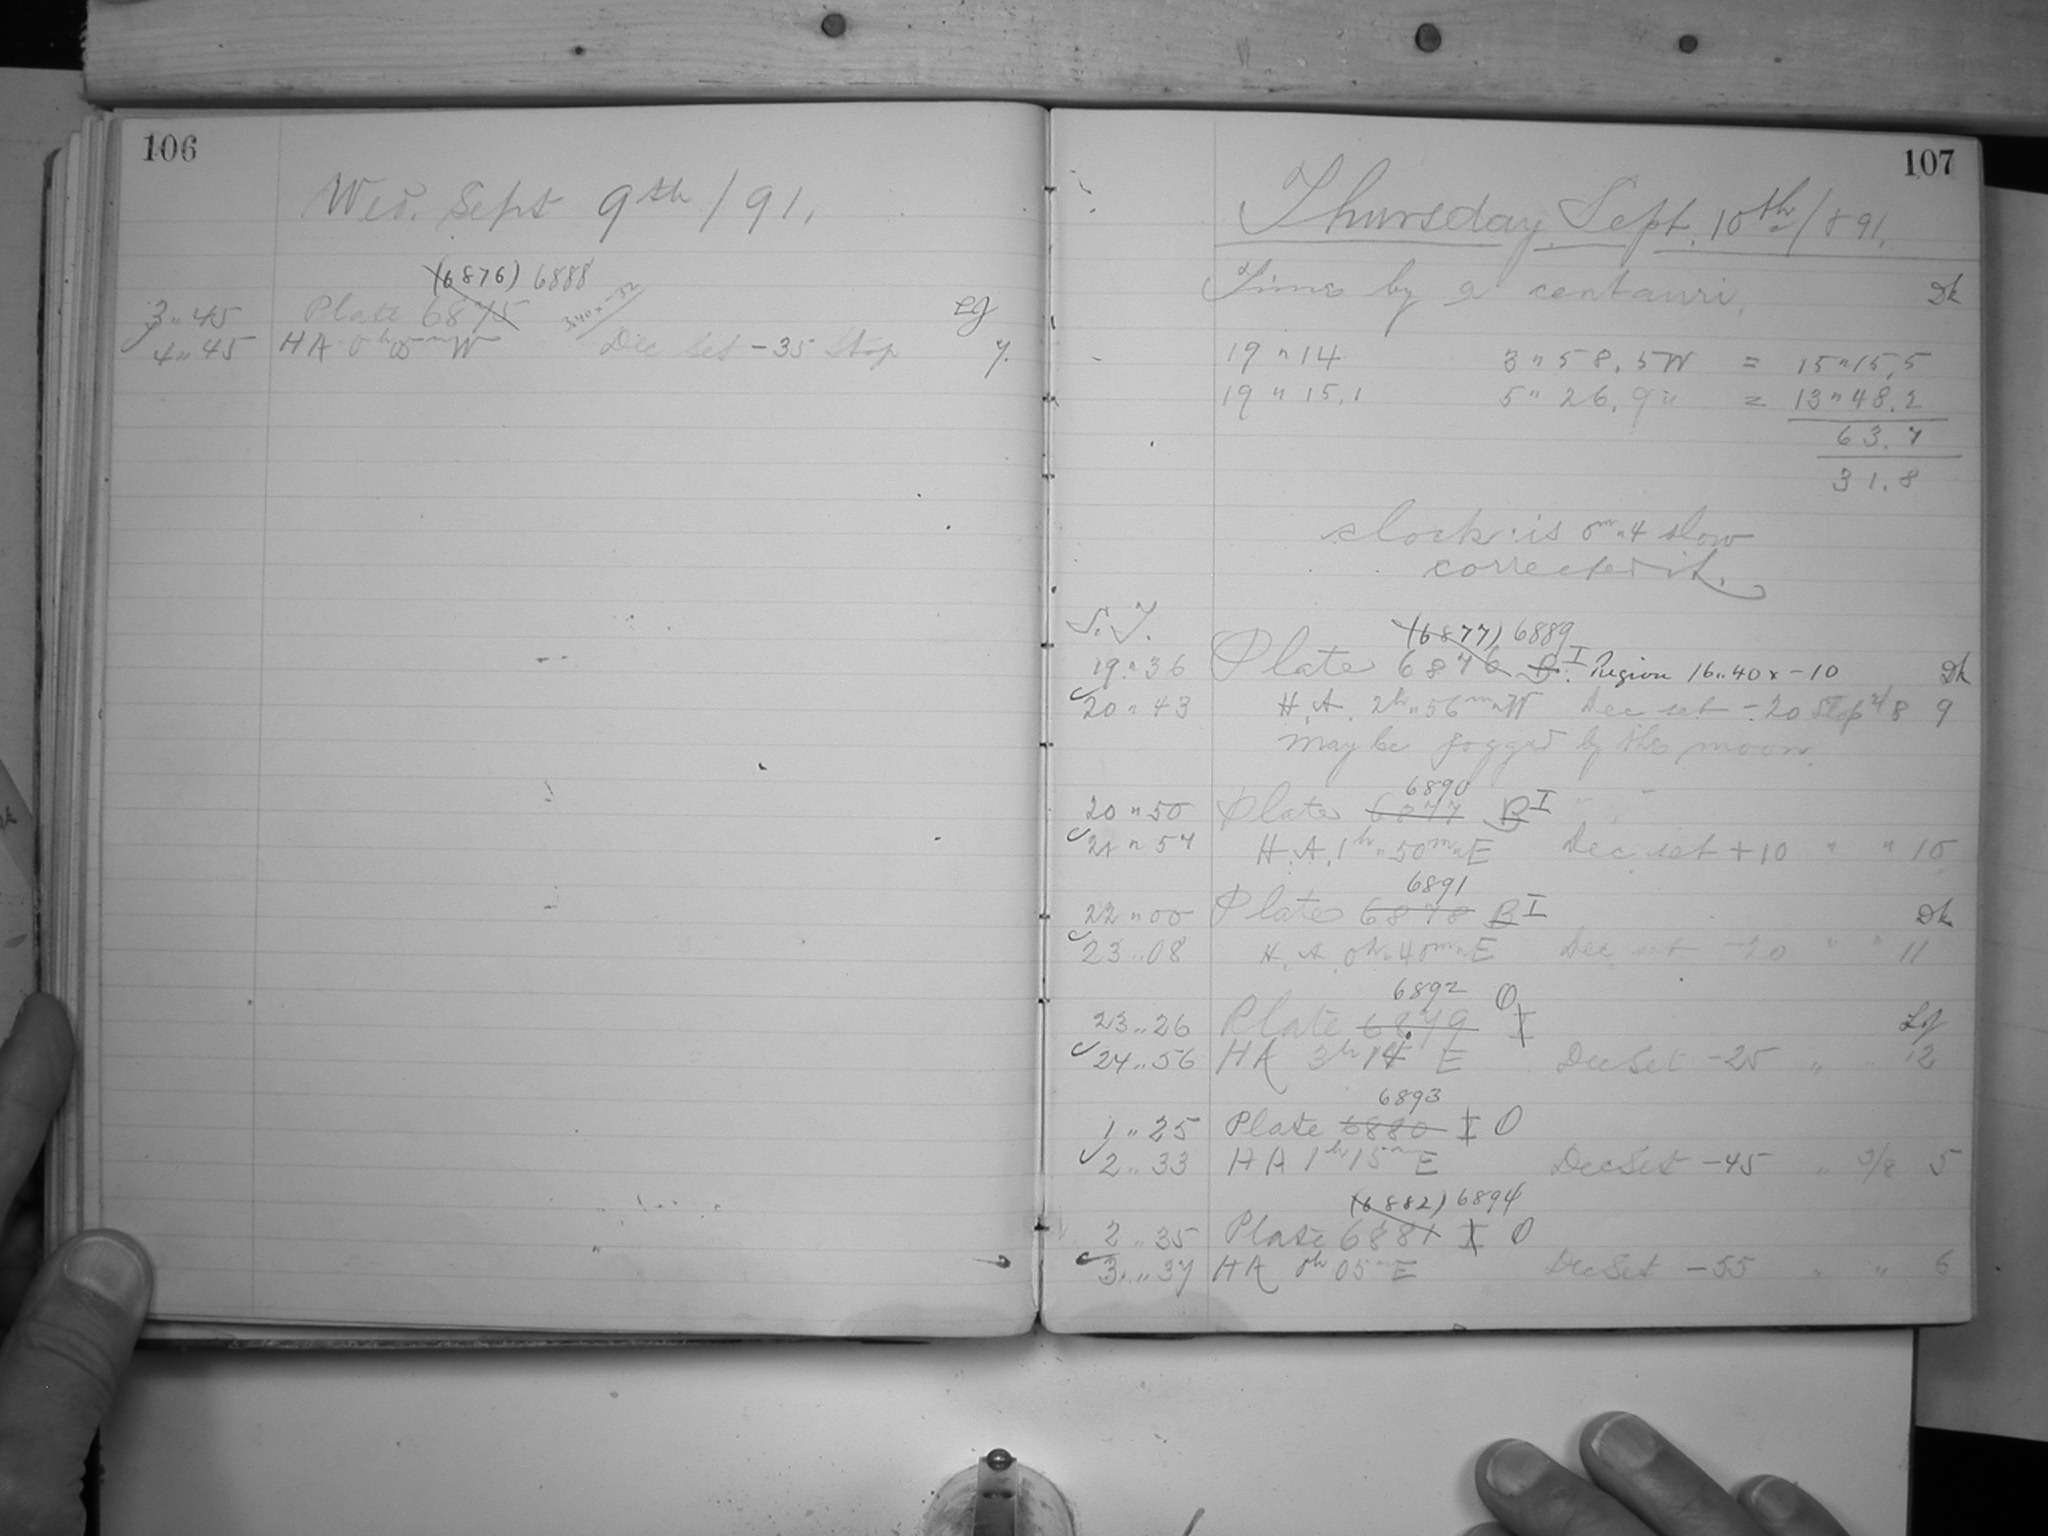 106
Wed. Sept 9th / 91.
(6876) 6888
3 " 45 Plate 6875 3.40 x -32 EG
4 " 45 HA 0h 05m W Dec Set -35 Stop 7.
107
Thursday Sept. 10th/891.
Time by a centauri. Dk
19 " 14 3 " 58.5 W = 15 " 15.5
19 " 15.1 5 " 26.9 " = 13 " 48.2
63.7
31.8
clock is 0m.4 slow
corrected it.
S. T.
(6877) 6889
19 " 36 Plate 6876 B I Region 16 " 40 x -10 Dk
20 " 43 H. A. 2h " 56m " W Dec set -20 Stop 2/8 9
may be fogged by the moon.
6890
20 " 50 Plate 6877 B I " "
21 " 57 H. A. 1h " 50m " E Dec set +10 " " 10
6891
22 " 00 Plate 6878 B I Dk
23 " 08 H. A. 0h " 40m " E Dec set -20 " " 11
6892 O
23 " 26 Plate 6879 I
24 " 56 HA 3h 14 E Dec Set -25 " 12
6893
1 " 25 Plate 6880 I O
2 " 33 HA 1h 15m E Dec Set -45 " 3/8 5
(6882) 6894
2 " 35 Plate 6881 I O
3 " 37 HA 0h 05m E Dec Set -55 " " 6